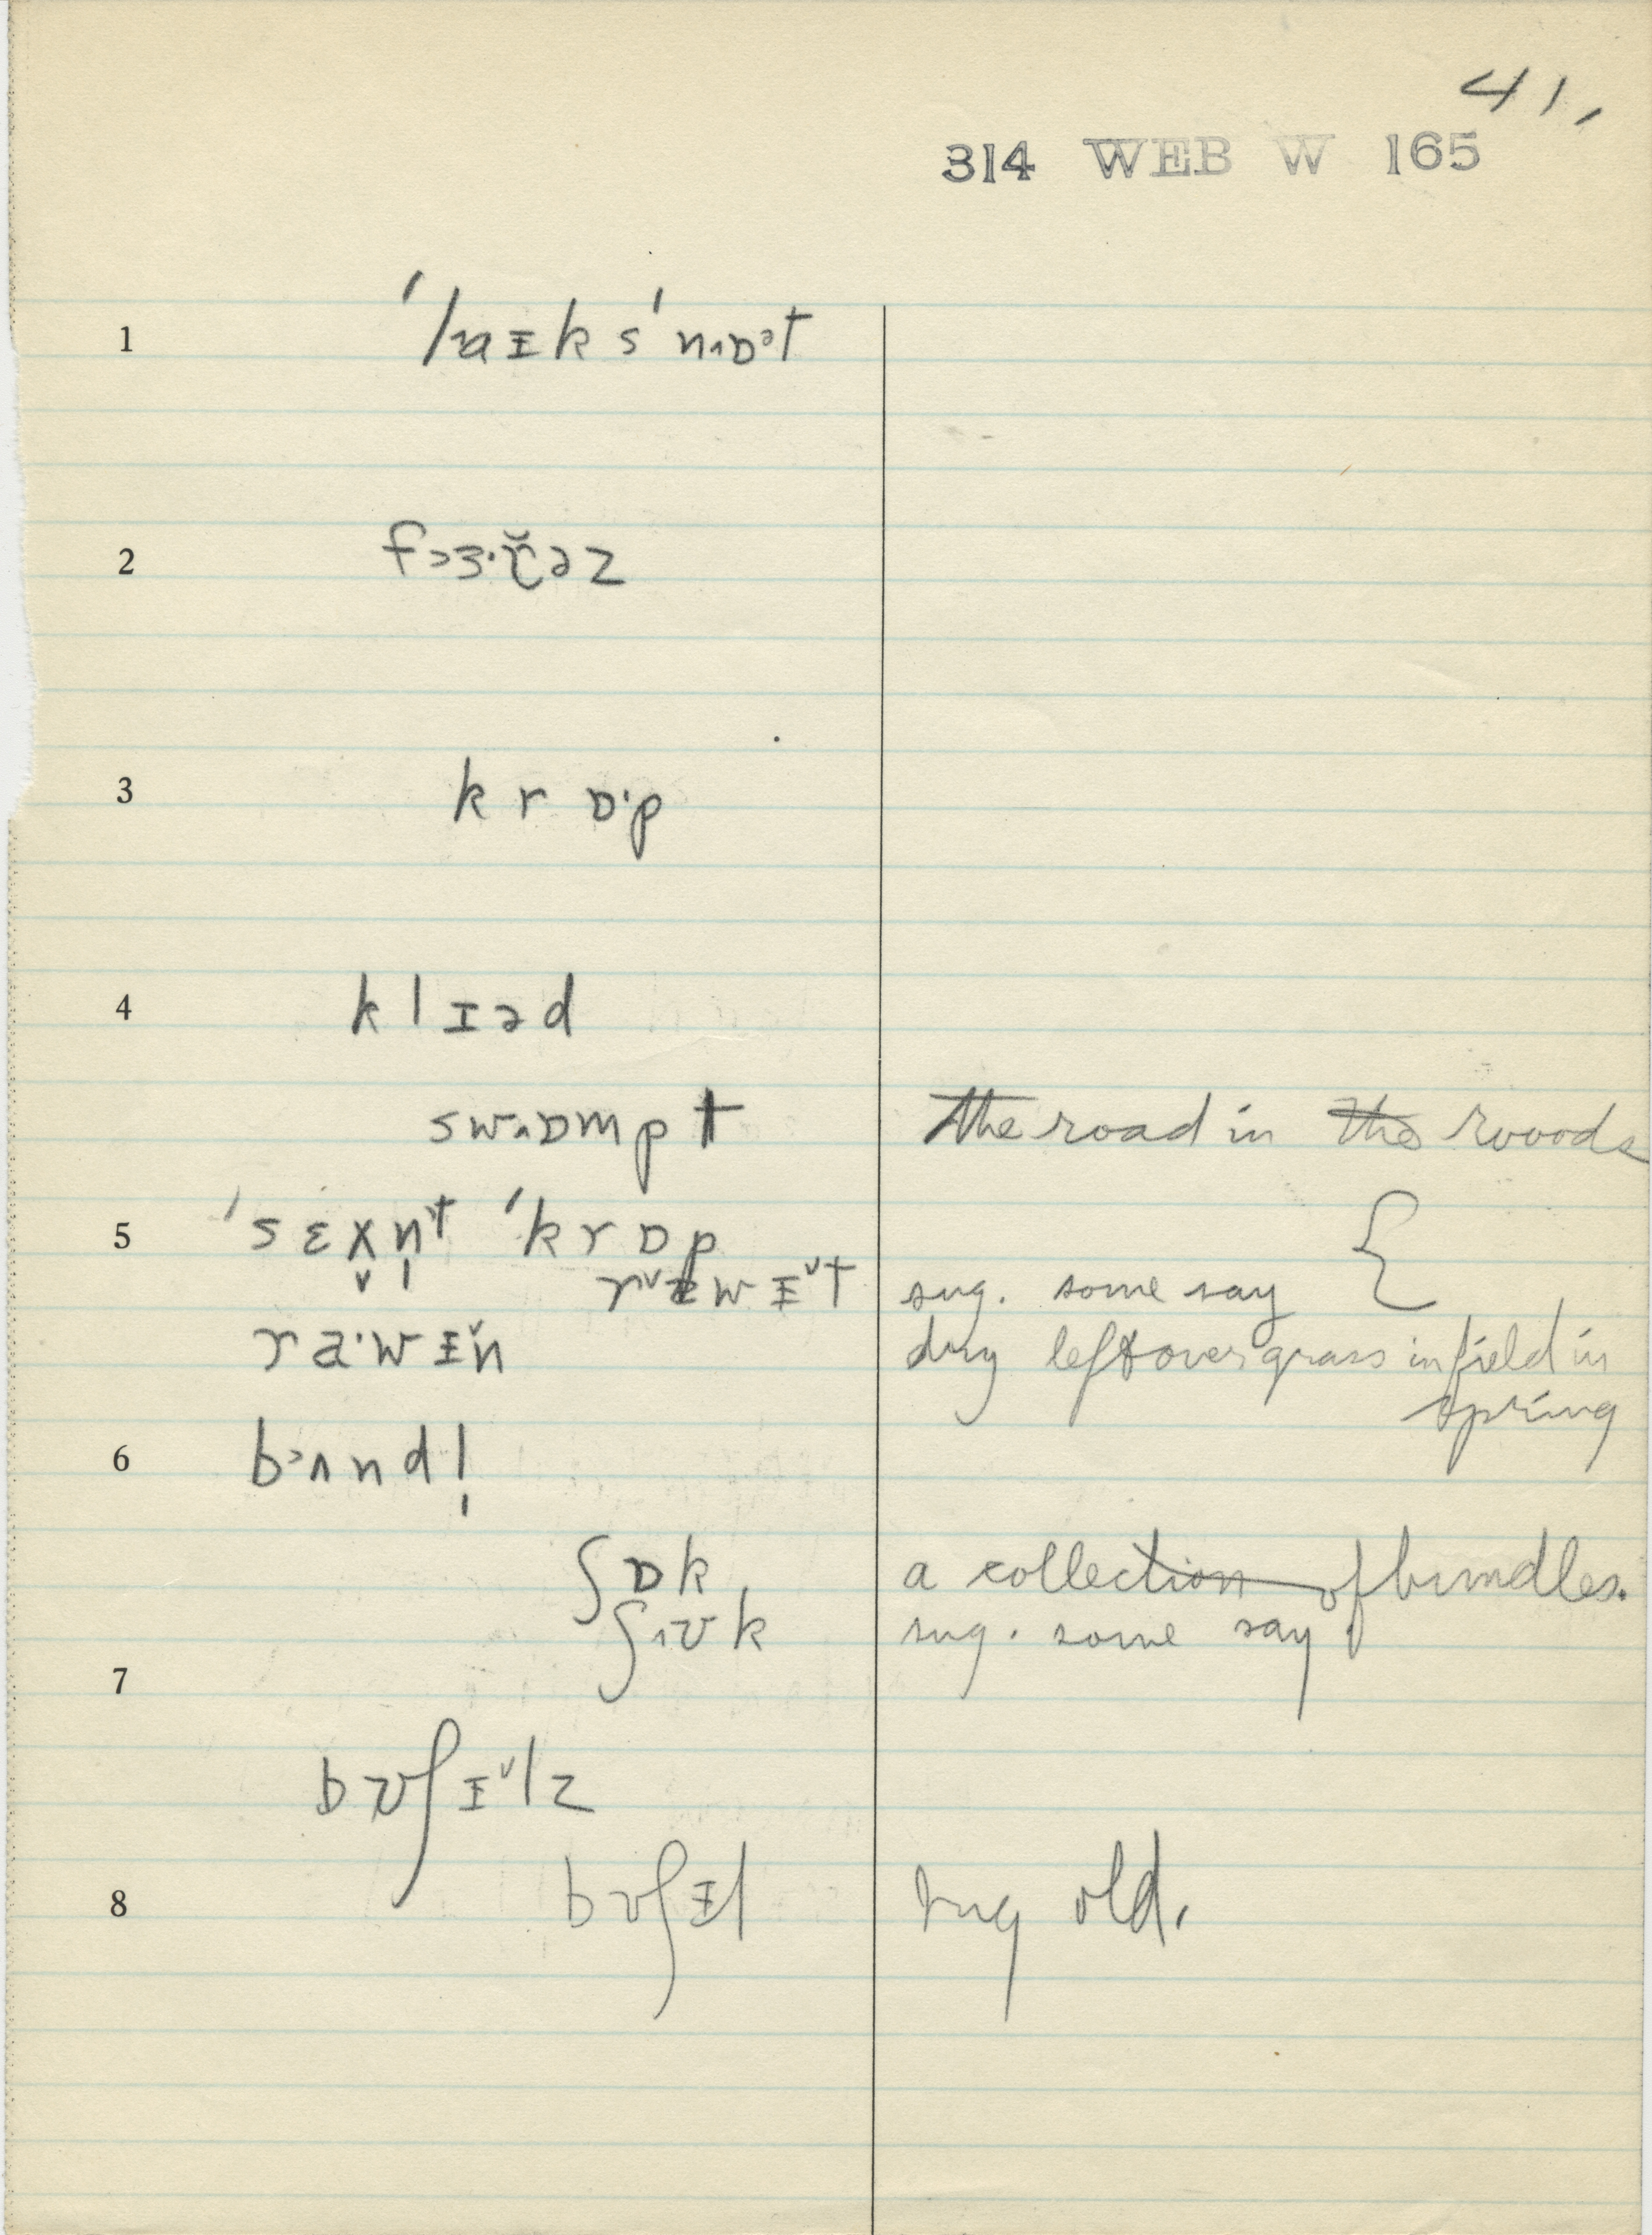 41,
314 WEB W 165
1 ˈlaɪks ˈnɒət
2
3 k r ɒ·p
4 k l ɪ ə d
swɒmpt the road in the woods
5 ˈsɛxn̩t ˈkrɒp
sug. some say {
ra·wɪ̆n dry leftover grass in field in
spring
6 bʌndl̩
ʃɒk, a collection of bundles.
ʃʊk sug. some say
7
bʊʃɪ̆lz
8 bʊʃɪl sug old.